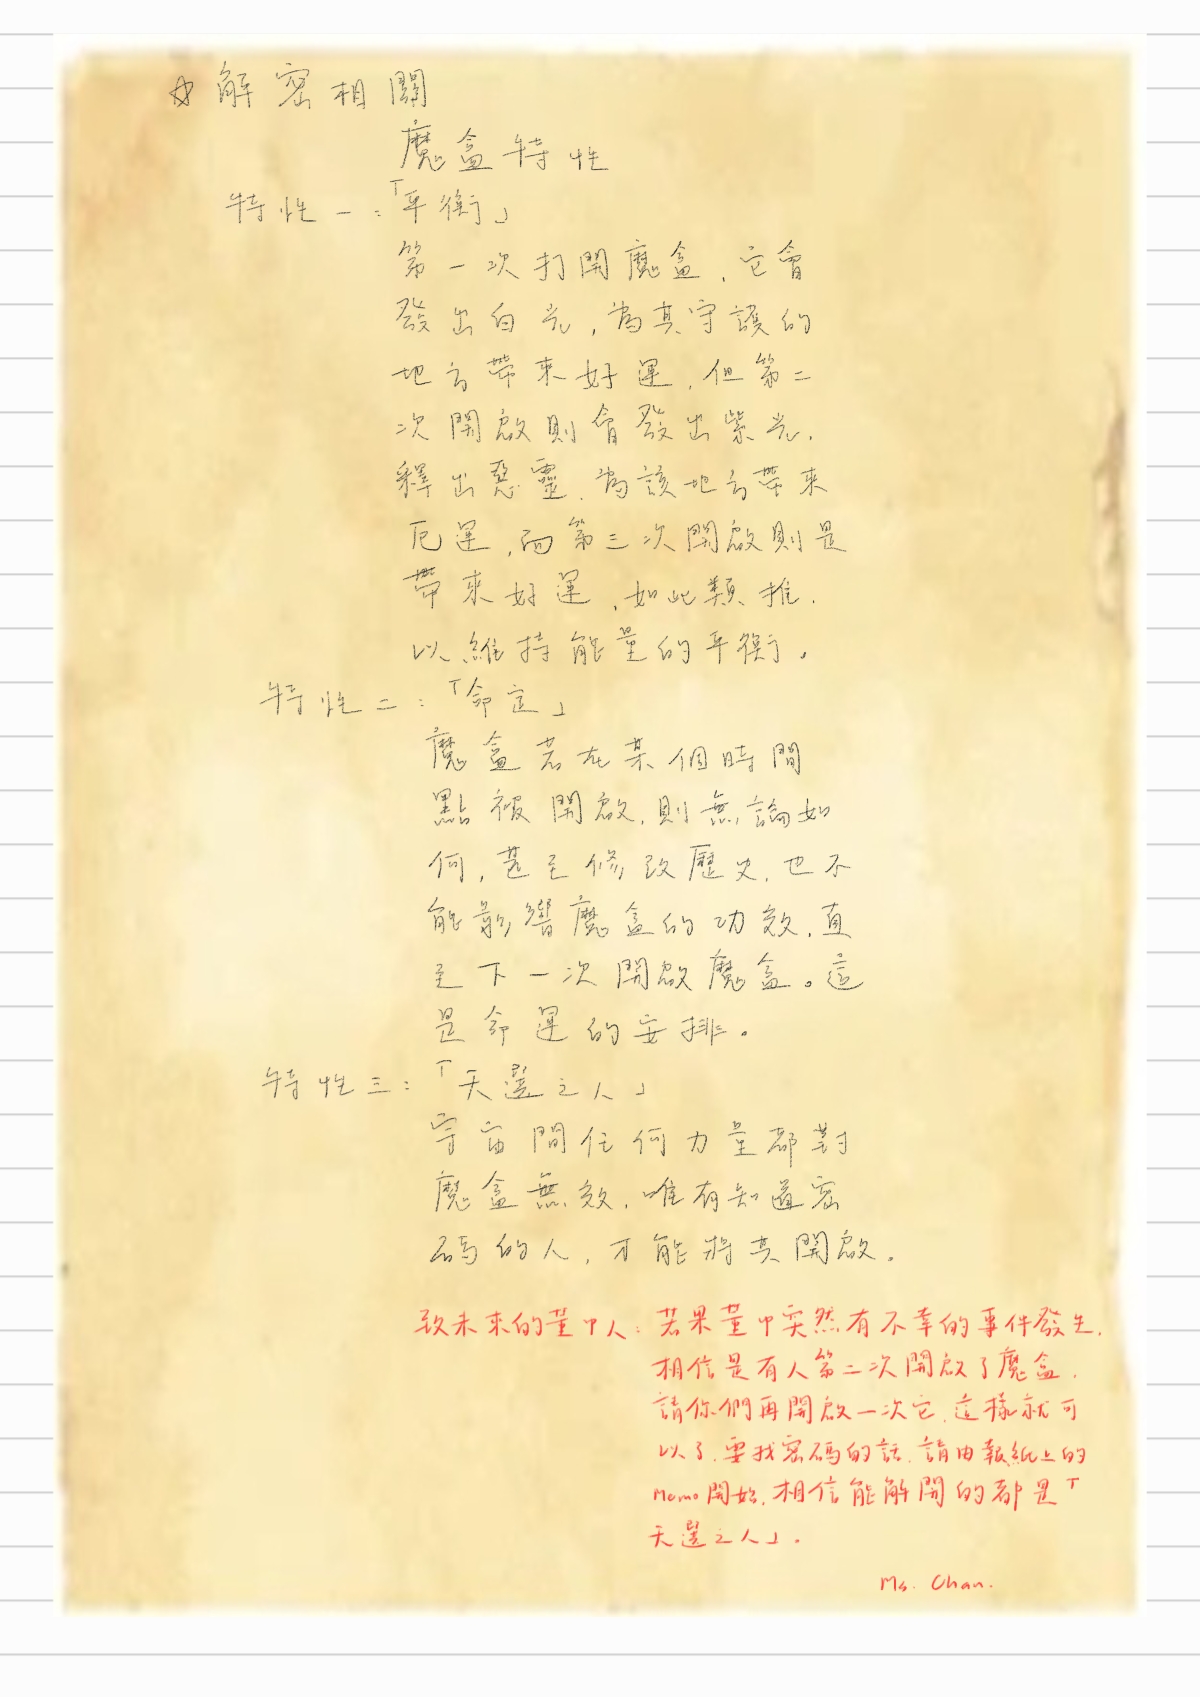 ☆解密相關
魔盒特性
特性一：「平衡」
第一次打開魔盒，它會
發出白光，為其守護的
地方帶來好運，但第二
次開啟則會發出紫光，
釋出惡靈，為該地方帶來
厄運，而第三次開啟則是
帶來好運，如此類推，
以維持能量的平衡。
特性二：「命定」
魔盒若在某個時間
點被開啟，則無論如
何，甚至修改歷史，也不
能影響魔盒的功效，直
至下一次開啟魔盒。這
是命運的安排。
特性三：「天選之人」
宇宙間任何力量都對
魔盒無效，唯有知道密
碼的人，才能將其開啟。
致未來的董中人：若果董中突然有不幸的事件發生，
相信是有人第二次開啟了魔盒，
請你們再開啟一次它，這樣就可
以了，要找密碼的話，請由報紙上的
Memo開始，相信能解開的都是「
天選之人」。
Ms. Chan.